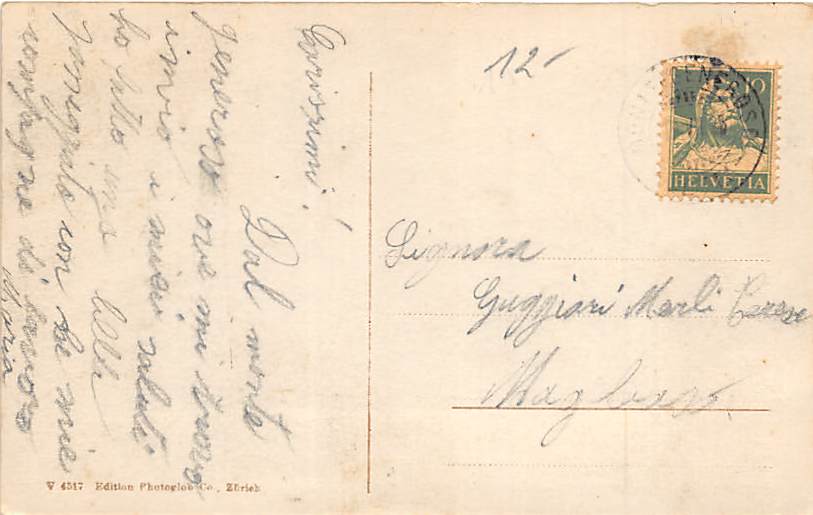 Carissimi!
Dal monte
generoso ove mi trovo
invio i miei saluti.
ho fatto una bella
passeggiata con le mie
compagne di lavoro
Maria
12-
GENEROSO
10
HELVETIA
Signora
Guggiari Marli
V 4517 Edition Photoglob Co., Zürich